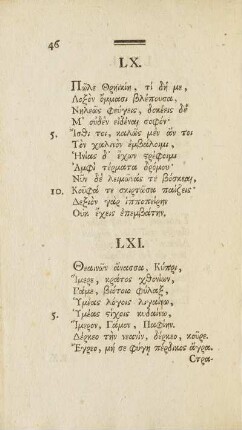 46
LX.
Πῶλε Θρηικίη, τί δή με,
Λοξὸν ὄμμασι βλέπουσα,
Νηλεῶς φεύγεις, δοκέεις δὲ
Μ' οὐδὲν εἰδέναι σοφόν·
5. Ἴσθι τοι, καλῶς μὲν ἄν τοι
Τὸν χαλινὸν ἐμβάλοιμι,
Ἡνίας δ' ἔχων στρέφοιμι
Ἀμφὶ τέρματα δρόμου·
Νῦν δὲ λειμῶνάς τε βόσκεαι,
10. Κοῦφά τε σκιρτῶσα παίζεις·
Δεξιὸν γὰρ ἱπποπείρην
Οὐκ ἔχεις ἐπεμβάτην.
LXI.
Θεαινῶν ἄνασσα, Κύπρι,
Ἵμερε, κράτος χθονίων,
Γάμε, βιότοιο φύλαξ,
Ὑμέας λόγοις λιγαίνω,
5. Ὑμέας στίχοις κυδαίνω,
Ἵμερον, Γάμον, Παφίην.
Δέρκεο τὴν νεᾶνιν, δέρκεο, κοῦρε.
Ἔγρεο, μή σε φύγῃ πέρδικος ἄγρα.
Στρα-